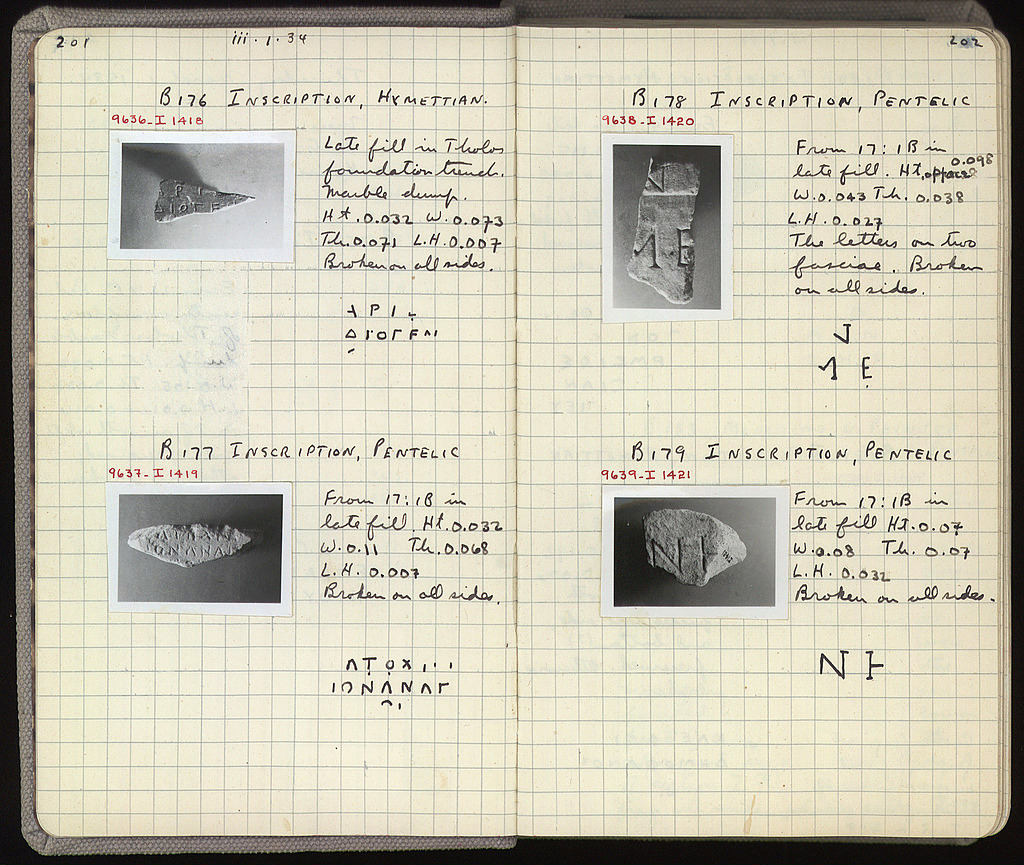 201
iii.1.34
B176 INSCRIPTION, HYMETTIAN.
9636-I 1418
Late fill in Tholos
foundation trench.
Marble dump.
Ht. 0.032 W. 0.073
Th. 0.071 L.H. 0.007
Broken on all sides.
Ρ Ι
Δ Ι Ο Γ Ε
B177 INSCRIPTION, PENTELIC
9637-I 1419
From 17:1B in
late fill. Ht. 0.032
W. 0.11 Th. 0.068
L.H. 0.007
Broken on all sides.
Λ Τ Ο Χ Ι
Ι Ο Ν Α Ν Α Γ
202
B178 INSCRIPTION, PENTELIC
9638-I 1420
From 17:1B in
late fill. Ht. 0.098
W. 0.043 Th. 0.038
L.H. 0.027
The letters on two
fasciae. Broken
on all sides.
Ε
B179 INSCRIPTION, PENTELIC
9639-I 1421
From 17:1B in
late fill Ht. 0.07
W. 0.08 Th. 0.07
L.H. 0.032
Broken on all sides.
Ν Ͱ